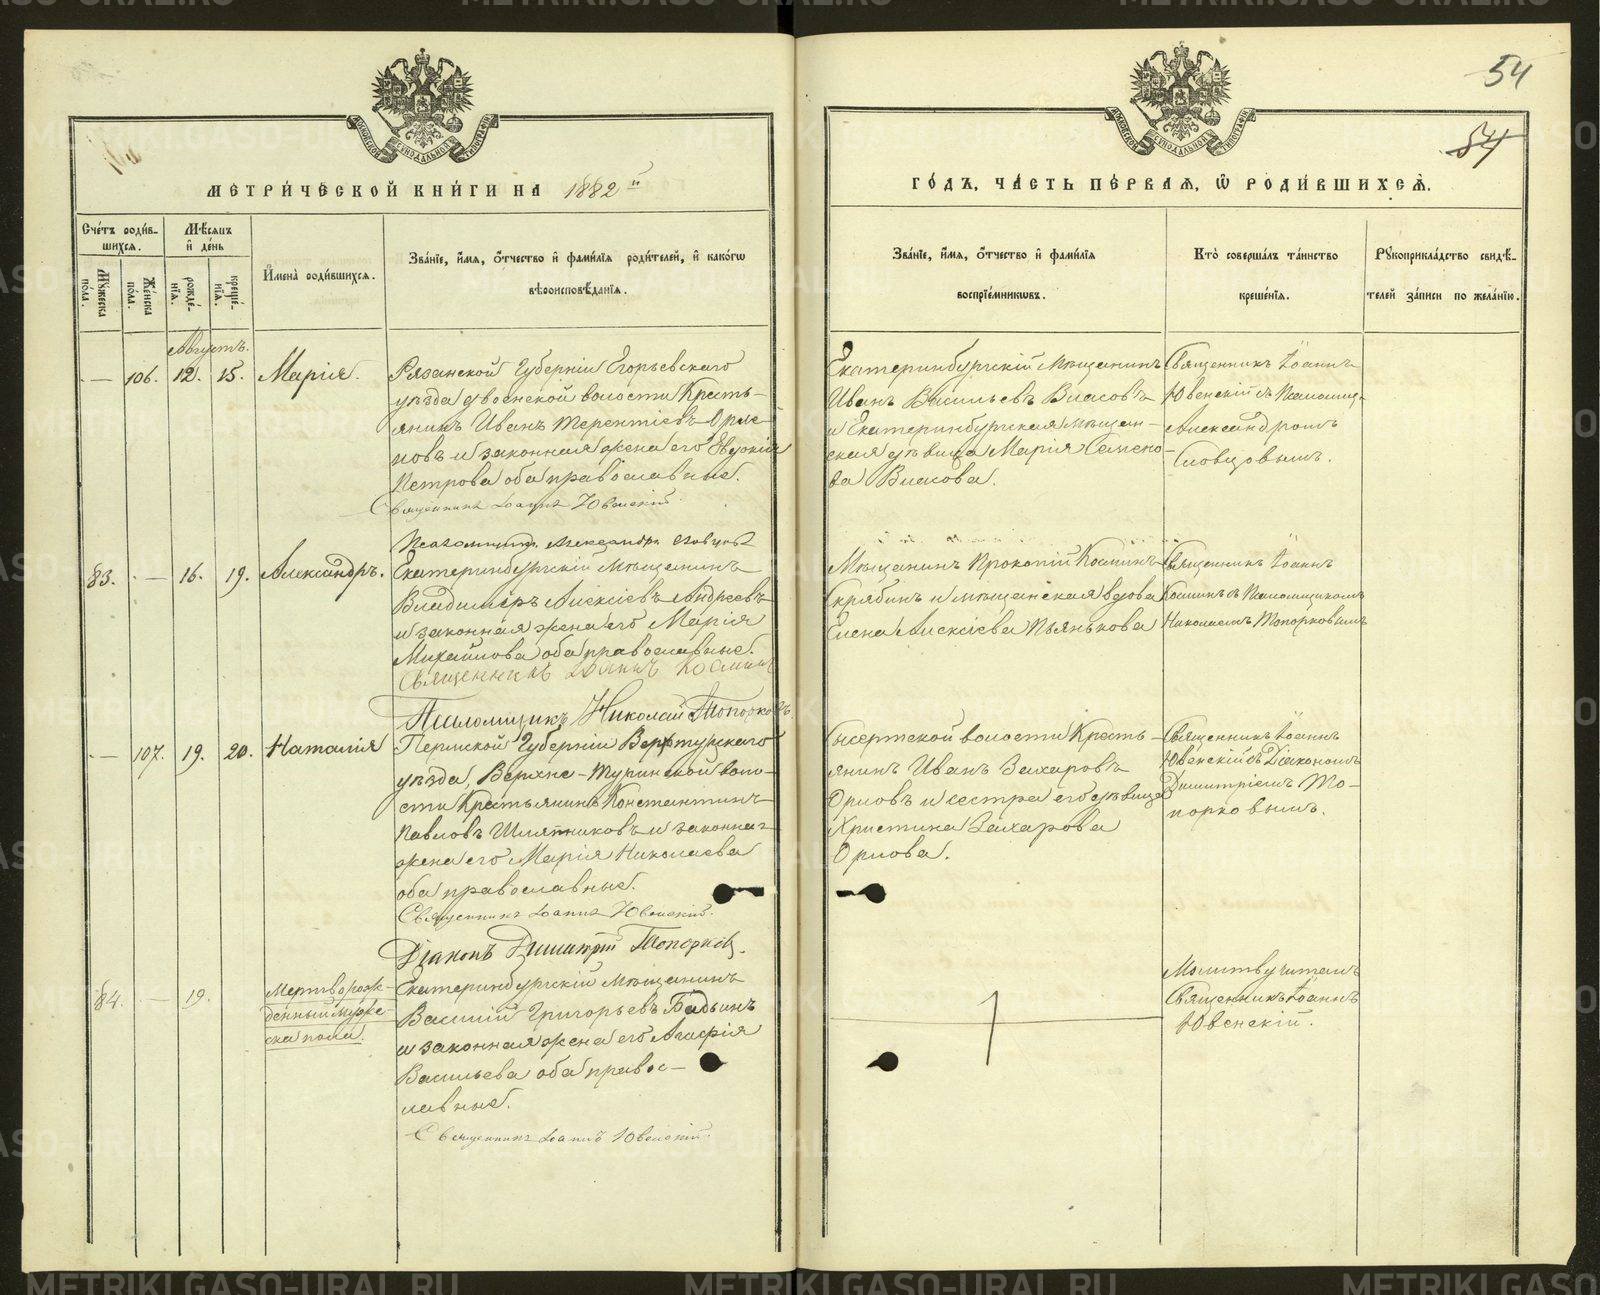 54
54
МЕТРИЧЕСКОЙ КНИГИ НА 1882й
ГОДЪ, ЧАСТЬ ПЕРВАЯ, Ѿ РОДИВШИХСЯ.
Счетъ родив-
шихся.
Мужеска пола.
Женска пола.
Мѣсяцъ
и день
рожде-
нія.
креще-
нія.
Имена родившихся.
Званіе, имя, отчество и фамилія родителей, и какогѡ
вѣроисповѣданія.
Званіе, имя, отчество и фамилія
воспріемникѡвъ.
Кто совершалъ таинство
крещенія.
Рукоприкладство свидѣ-
телей записи по желанію.
Августъ.
— 106. 12. 15. Марія.
Рязанской Губерніи Егорьевскаго
уѣзда двоенской волости Кресть-
янинъ Иванъ Терентіевъ Орле-
новъ и законная жена его Евдокія
Петрова оба православные.
Священникъ Іоаннъ Ювенскій.
Псаломщикъ Александръ Словцовъ
Екатеринбургскій Мѣщанинъ
Иванъ Васильевъ Власовъ
и Екатеринбургская мѣщан-
ская дѣвица Марія Семено-
ва Власова.
Священникъ Іоаннъ
Ювенскій съ Псаломщ.
Александромъ
Словцовымъ.
83. — 16. 19. Александръ.
Екатеринбургскій Мѣщанинъ
Владиміръ Алексіевъ Андреевъ
и законная жена его Марія
Михайлова оба православные.
Священникъ Іоаннъ Косминъ
Псаломщикъ Николай Топорковъ
Мѣщанинъ Прокопій Косминъ
Скрябинъ и мѣщанская вдова
Елена Алексіева Пьянкова
Священникъ Іоаннъ
Косминъ съ Псаломщикомъ
Николаемъ Топорковымъ
— 107. 19. 20. Наталія
Пермской Губерніи Верхотурскаго
уѣзда, Верхне-Туринской воло-
сти Крестьянинъ Константинъ
Павловъ Шляпниковъ и законная
жена его Марія Николаева
оба православные.
Священникъ Іоаннъ Ювенскій.
Діаконъ Димитрій Топорковъ.
Сысертской волости Кресть-
янинъ Иванъ Захаровъ
Орловъ и сестра его дѣвица
Христина Захарова
Орлова.
Священникъ Іоаннъ
Ювенскій съ Діакономъ
Димитріемъ То-
порковымъ.
84. — 19.
Мертворож-
денный муже-
ска пола.
Екатеринбургскій мѣщанинъ
Василій Григорьевъ Бадьинъ
и законная жена его Агафія
Васильева оба правос-
лавные.
Священникъ Іоаннъ Ювенскій.
Молитву читалъ
Священникъ Іоаннъ
Ювенскій.
METRIKI.GASO-URAL.RU